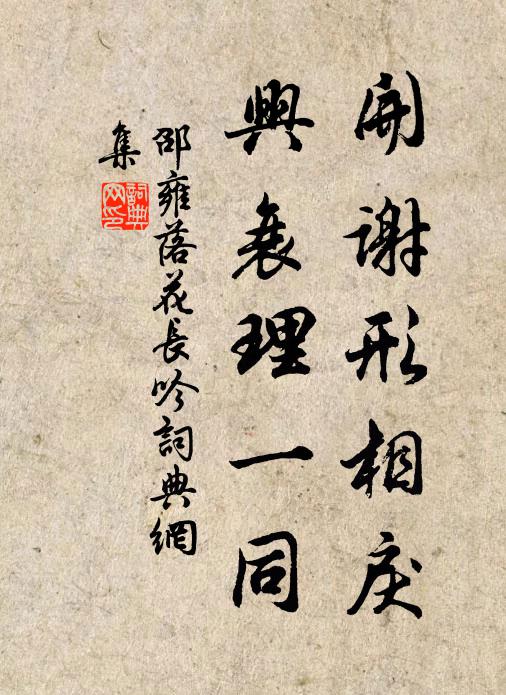 開謝形相戾
興衰理一同
邵雍落花長吟詞典網
集
詞典
网印